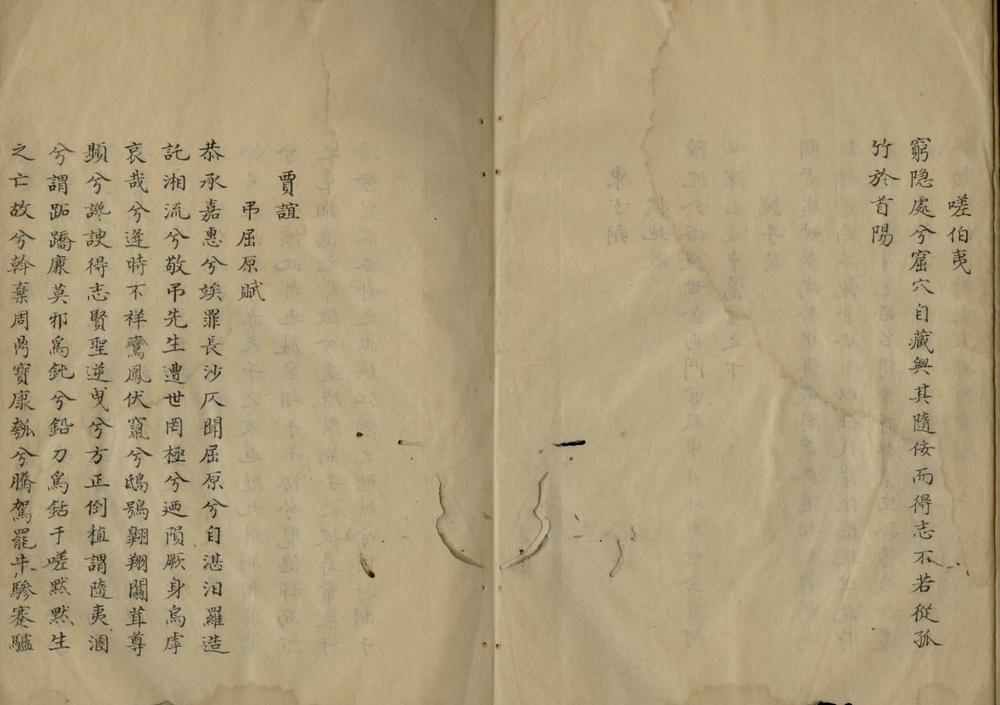 嗟伯夷
窮隐處兮窟穴自藏與其隨佞而得志不若從孤
竹於首陽
賈誼
弔屈原賦
恭承嘉惠兮竢罪長沙仄聞屈原兮自湛汨羅造
託湘流兮敬弔先生遭世罔極兮迺隕厥身烏虖
哀哉兮逢時不祥鸞鳳伏竄兮鴟鴞翱翔闒茸尊
顯兮讒諛得志賢聖逆曳兮方正倒植謂隨夷溷
兮謂跖蹻廉莫邪爲鈍兮鉛刀爲銛于嗟默默生
之亡故兮斡棄周鼎寶康瓠兮騰駕罷牛驂蹇驢